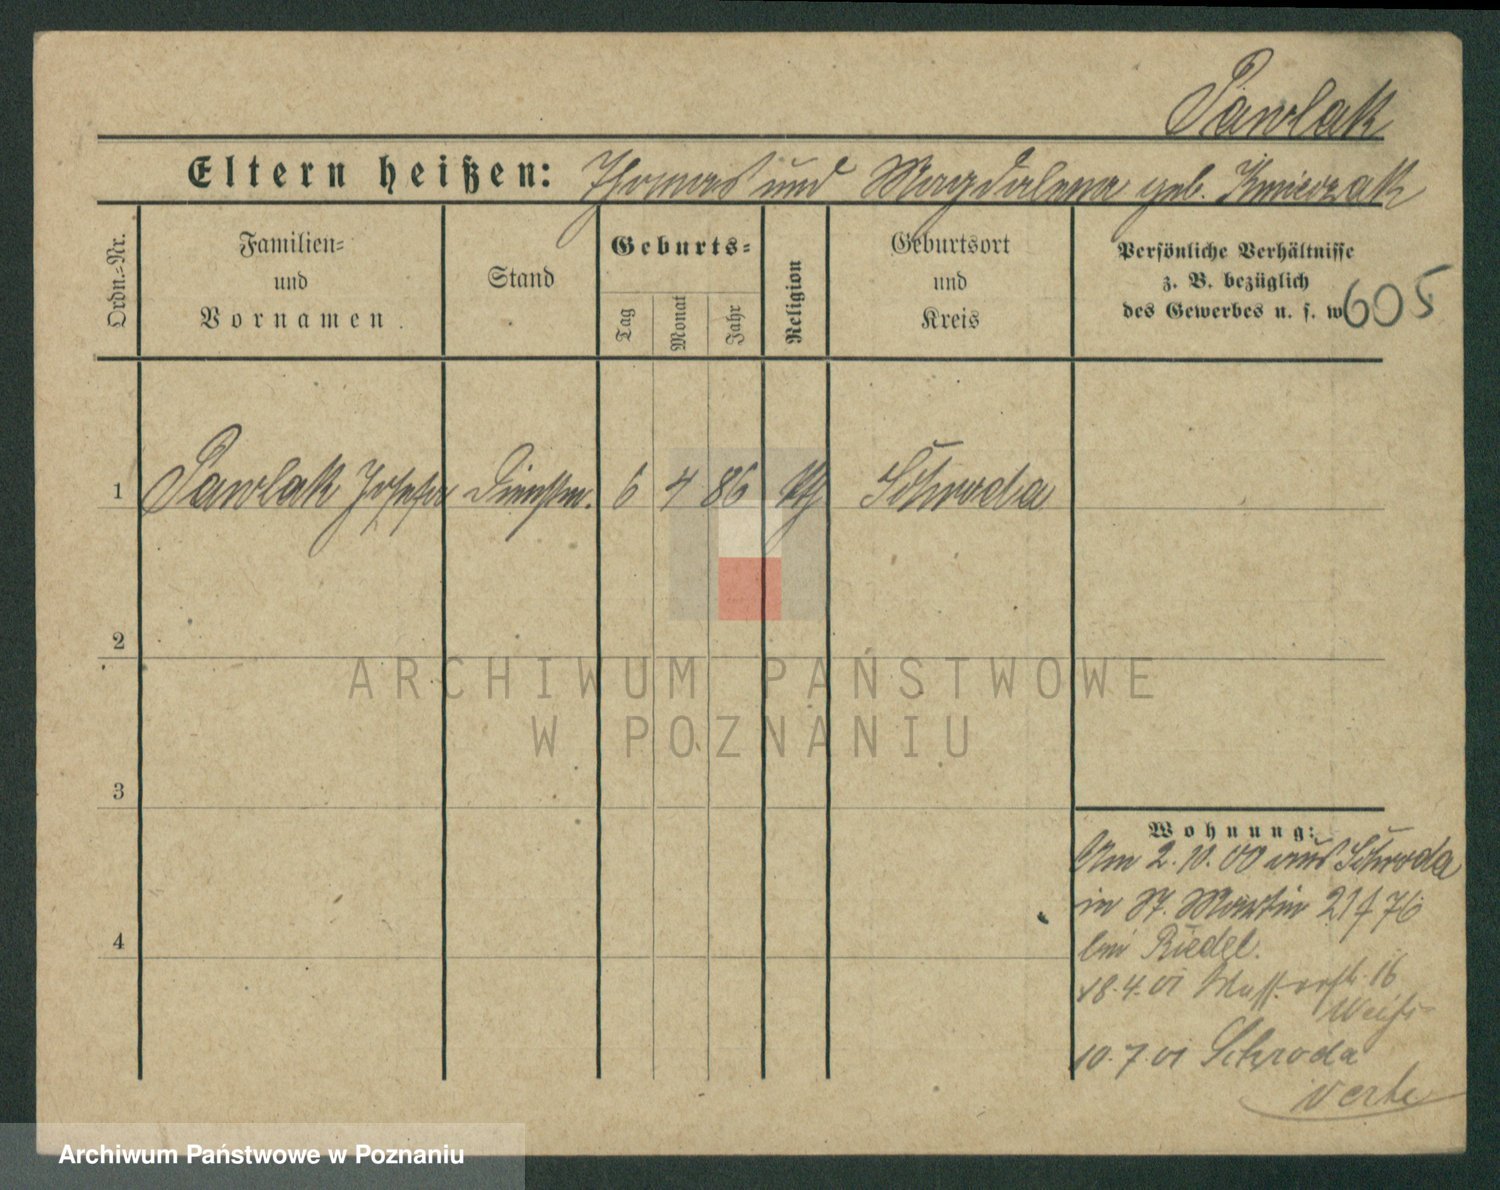 Pawlak
Eltern heißen: Thomas und Magdalena geb. Kmieczak
Ordn.-Nr.
Familien-
und
Vornamen.
Stand
Geburts-
Tag
Monat
Jahr
Religion
Geburtsort
und
Kreis
Persönliche Verhältnisse
z. B. bezüglich
des Gewerbes u. s. w.
605
1 Pawlak Josefa Dienstm. 6 4 86 kth Schroda
2
3
4
Wohnung:
Am 2.10.00 aus Schroda
in St. Martin 21/76
bei Riedel.
18.4.01 16
10.7 01 Schroda
verte
ARCHIWUM PAŃSTWOWE
W POZNANIU
Archiwum Państwowe w Poznaniu